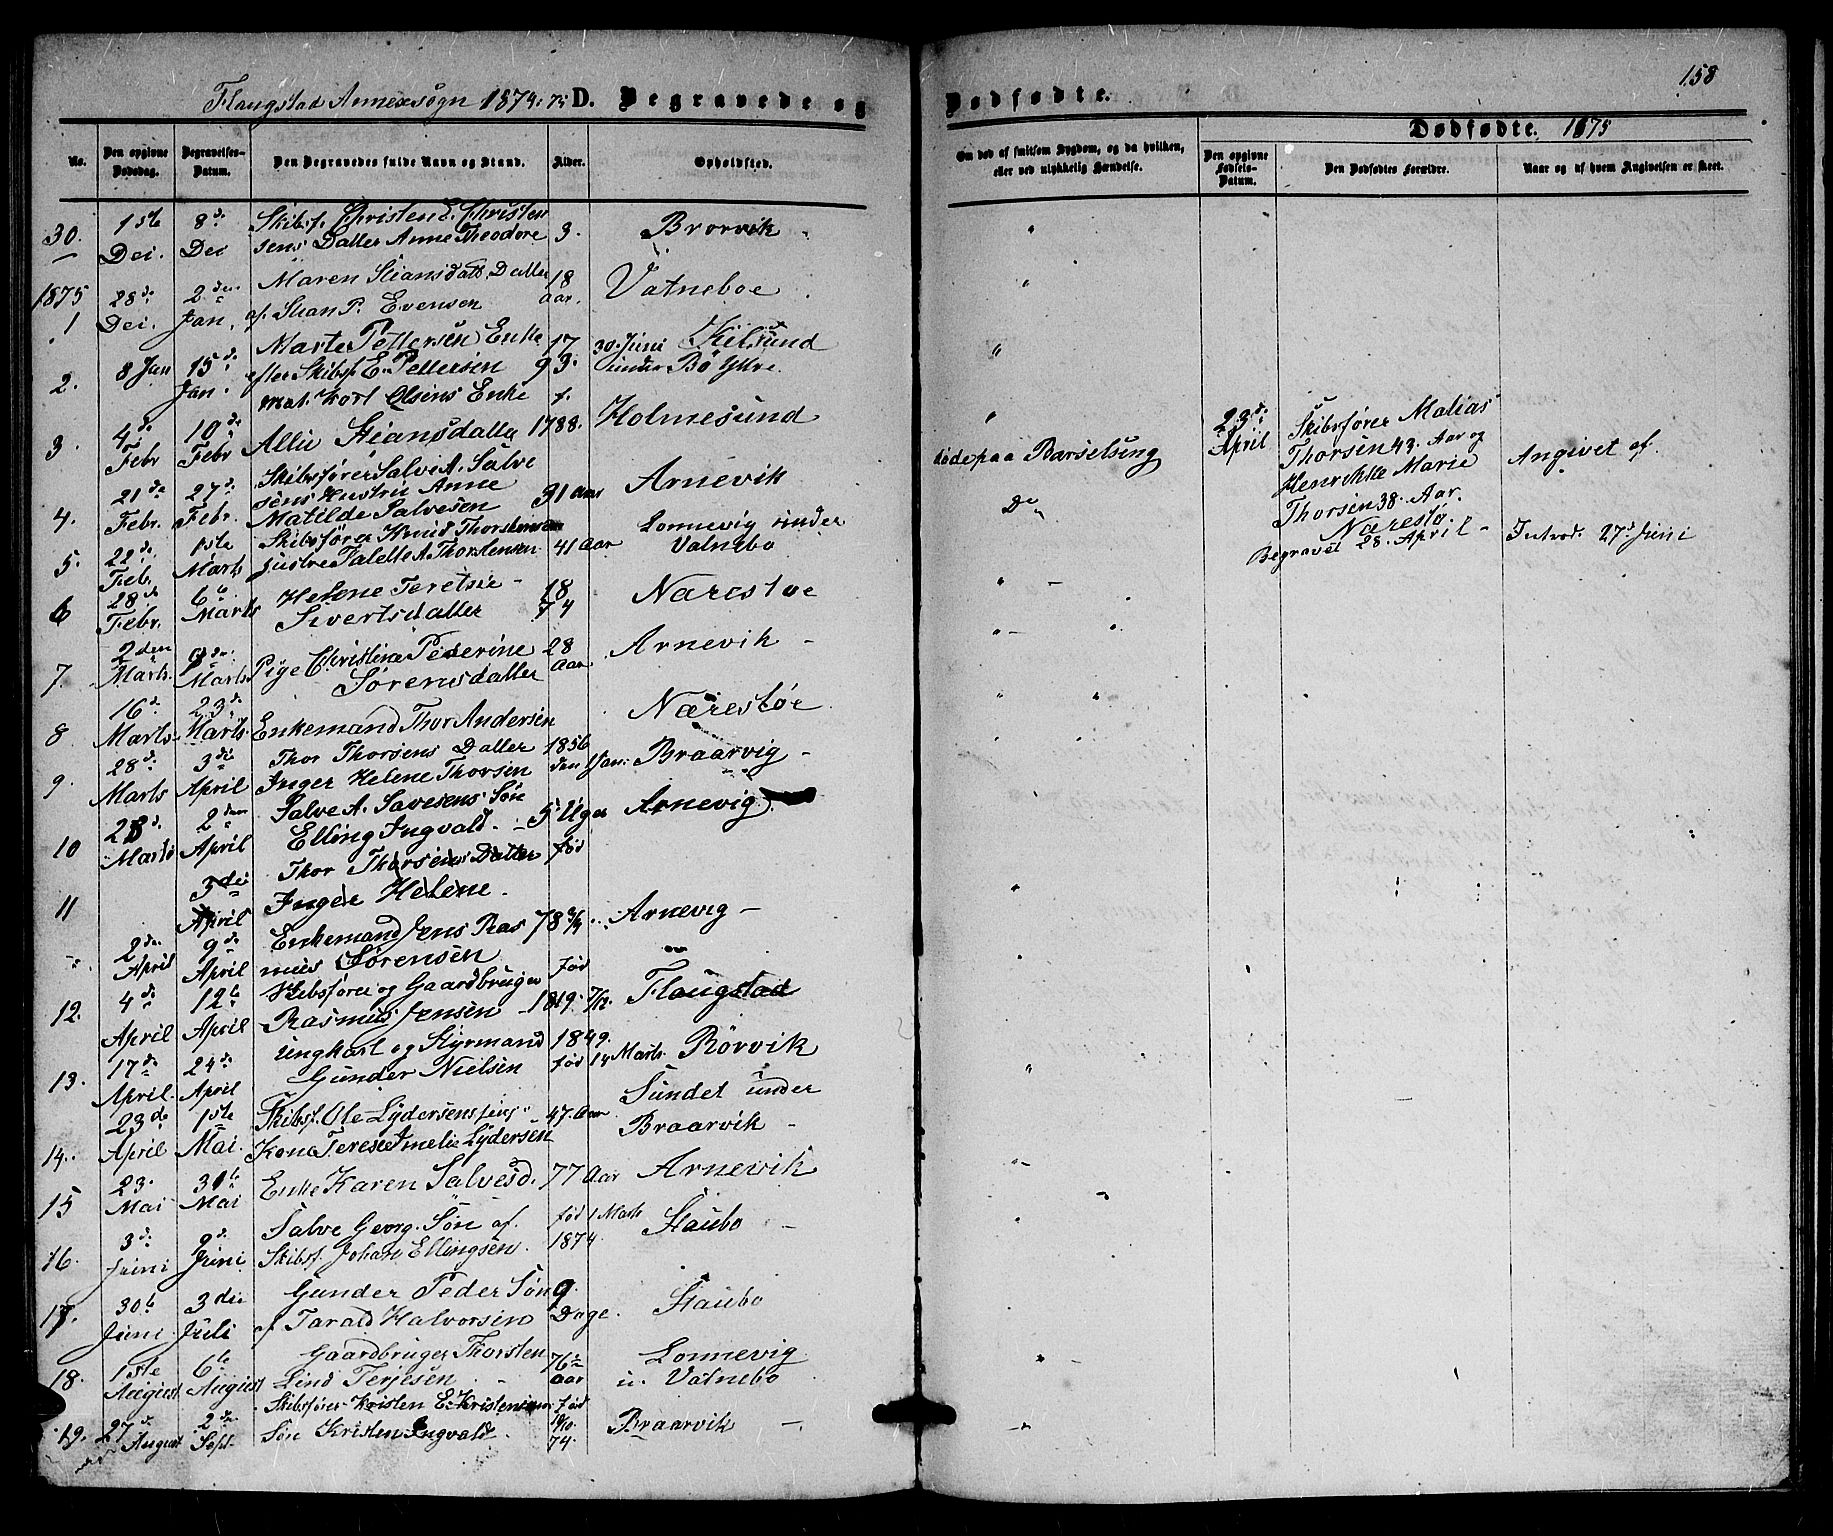 158
Flaugstad Annexsogn 1874-75 D. Begravede og Dødfødte.
Dødfødte. 1875
No.
Den opgivne Dødsdag.
Begravelses-Datum.
Den Begravedes fulde Navn og Stand.
Alder.
Opholdssted.
Om død af smitsom Sygdom, og da hvilken,
eller ved ulykkelig Hændelse.
Den opgivne Fødsels-Datum.
Den Dødfødtes Forældre.
Naar og af hvem Angivelsen er skeet.
30. 1ste Dei. 8de Dei Skibsf. Christen E. Christen
sens Datter Anne Theodore 3. Brorvik
1875
1 28de Dei. 2den Jan. Maren Stiansdatt. Datter
af Stian P. Evensen 18 aar. Vatneboe
2. 8 Jan 15de Jan. Marte Pettersen Enke
efter Skibsf. E. Pettersen 17 30 Juni Kilsund
93. under Bö Ytre
3. 4de Febr 10de Febr Mat. Karl Olsens Enke
Allie Stiansdatter f. 1788. Holmesund
4. 21de Febr. 27de Febr. Skibsfører Salve A. Salve
sens Hustru Anne
Matilde Salvesen 31 Aar Arnevik døde paa Barselseng
5. 22de Feb. 1ste Marts Skibsfører Knud Thorstensen
Hustru Talette A. Thorstensen 41 Aar Lonnevig under
Vatnebo Do
6 28de Febr. 6te Marts Helene Teretsie
Sivertsdatter 18
74 Narestoe
7. 2den Marts. 9de Marts Pige Christine Pederine
Sørensdatter 28 Aar Arnevik
8 16de Marts. 23de Marts. Enkemand Thor Andersen Narestöe
9. 28de Marts 3die April Thor Thorsens Datter
Inger Helene Thorsen 1856 den Jan: Braarvig
10 28de Marts 2den April Salve A. Savesens Søn
Elling Ingvald. 5 Uger Arnevig
11 3die April Thor Thorsens Datter
Inger Helene. fød
2den April 9de April Enkemand Jens Ras
mus Sørensen 78 3/4 Arnevig
12. 4de April 12te April Skibsfører og Gaardbruger
Rasmus Jensen fød 1819. 7/12. Flaugstad
13. 17de April. 24de April Ungkarl og Styrmand
Gunder Nielsen 1849. fød 14 Marts. Rörvik
14. 23de April 1ste Mai. Skibsf. Ole Lydersens
Kone Terese Amelie Lydersen 47. Aar Sundet under
Braarvik
15 23. Mai 30te Mai Enke Karen Salvesd. 77 Aar Arnevik
16. 3de Juni 9de Juni Salve Georg. Søn af.
Skibsf. Johan Ellingsen. fød 1 Marts 1874. Staubo
17. 30te Juni 3die Juli Gunder Peder Søn
f Tarald Halvorsen 9 Dage. Staubo
18. 1ste August 6te August Gaardbruger Thorsten
Lind Terjesen 76 aar Lonnevig
u. Vatnebo
19. 27de August 2den Sept. Skibsfører Kristen E. Kristensen
Søn Kristen Ingvald fød 10/10 74. Braarvik
23de April Skibsfører Matias
Thorsen 43. Aar og
Henrikke Marie
Thorsen 38. Aar.
Narestö
Begravet 28. April
Angivet af.
Introd. 27de Juni